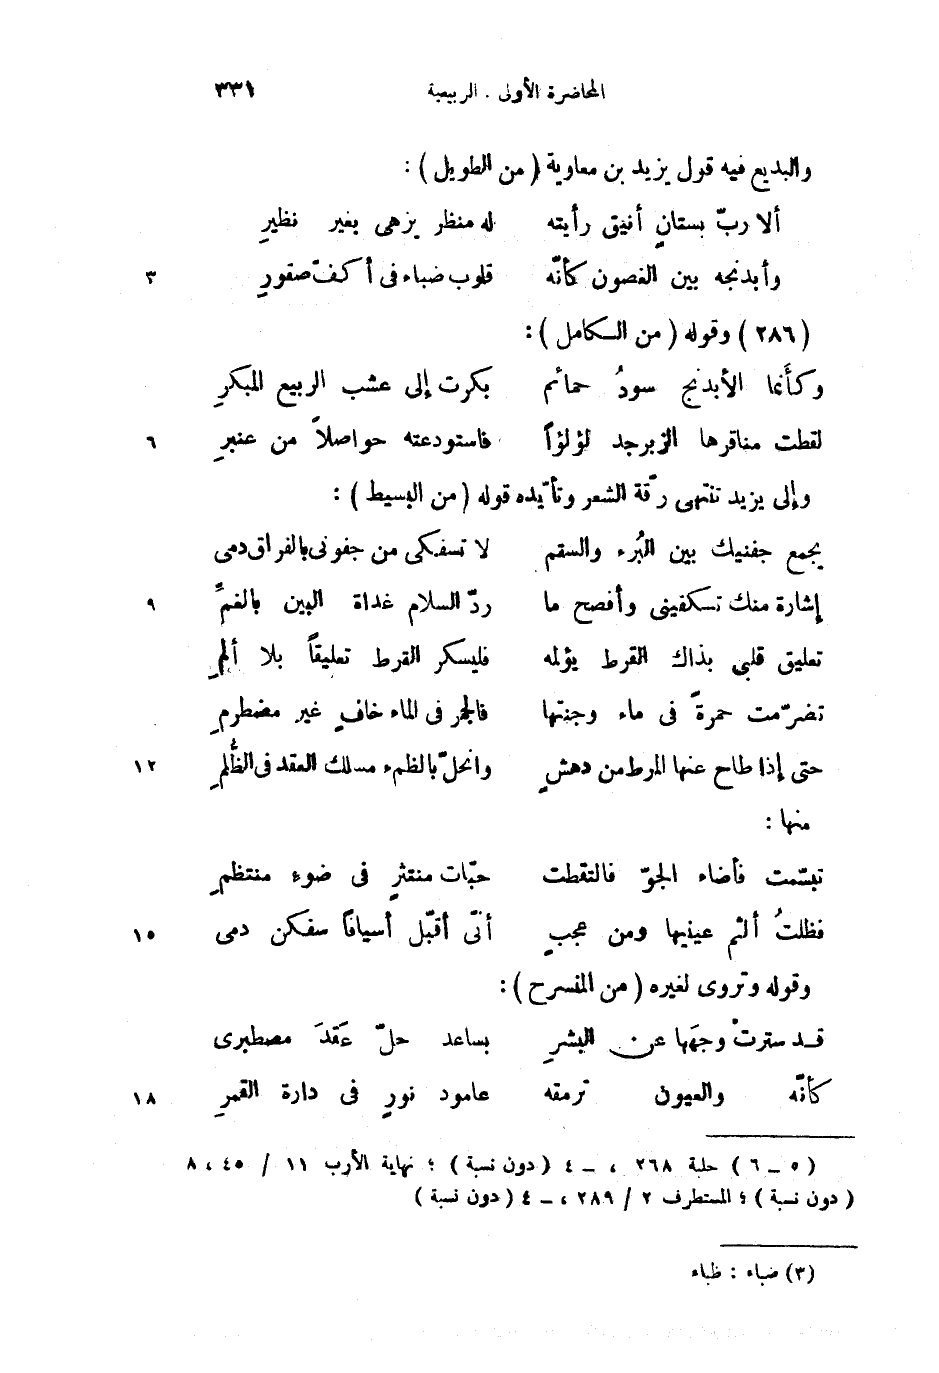 المحاضرة الأولى . الربيعية ٣٣١
والبديع فيه قول يزيد بن معاوية ( من الطويل ) :
ألا ربّ بستانٍ أنيق رأيته له منظر يزهى بغير نظيرِ
وأبدنجه بين الغصون كأنّه قلوب ضباء فى أكفّ صقورِ ٣
( ٢٨٦ ) وقوله ( من الكامل ) :
وكأَنما الأبدنج سودُ حمائم بكرت إلى عشب الربيع المبكرِ
لقطت مناقرها الزبرجد لؤلؤاً فاستودعته حواصلاً من عنبرِ ٦
وإلى يزيد تنتهى رقّة الشعر وتأيّده قوله ( من البسيط ) :
يجمع جفنيك بين البُرء والسقم لا تسفكى من جفونى بالفراق دمى
إشارة منك تكفينى وأفصح ما ردّ السلام غداة البين بالغمِّ ٩
تعليق قلبى بذاك القرط يؤلمه فليسكر القرط تعليقاً بلا ألمِ
تضرّمت حمرةً فى ماء وجنتها فالجمر فى الماء خافٍ غير مضطرمِ
حتى إذا طاح عنها المرط من دهشٍ وانحلّ بالظمء مسلك العقد فى الظُّلمِ ١٢
منها :
تبسّمت فأضاء الجوّ فالتقطت حبّات منتثرٍ فى ضوءِ منتظمِ
فظلتُ ألثم عينيها ومن عجبٍ أنّى أقبّل أسيافاً سفكن دمى ١٥
وقوله وتروى لغيره ( من المنسرح ) :
قد سترتْ وجهَها عن البشرِ بساعد حلّ عَقدَ مصطبرى
كأنّه والعيون ترمقه عامود نورٍ فى دارة القمرِ ١٨
( ٥ ــ ٦ ) حلبة ٢٦٨ ، ــ ٤ ( دون نسبة ) ؛ نهاية الأرب ١١ / ٤٥ ، ٨
( دون نسبة ) ؛ المستطرف ٢ / ٢٨٩ ، ــ ٤ ( دون نسبة )
(٣) ضباء : ظباء